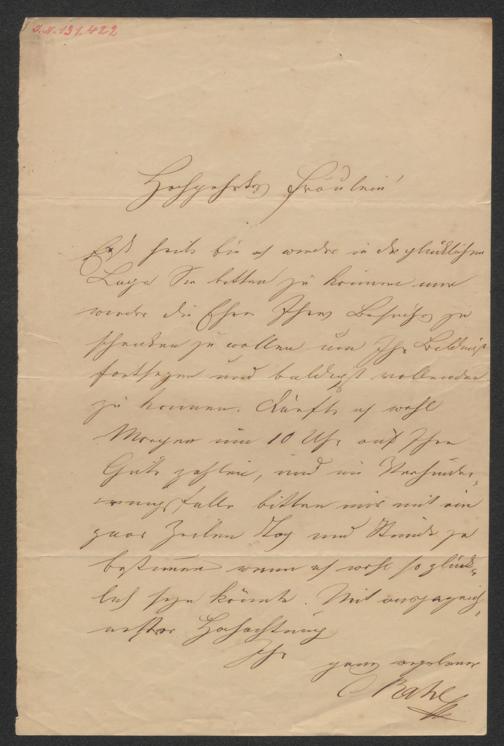 I.N. 131.422
Hochgeehrtes Fräulein!
Erst heute bin ich wieder in der glücklichen
Lage Sie bitten zu können mir
wieder die Ehre Ihres Besuches zu
schenken zu wollen um Ihr Bildniß
fortsetzen und baldigst vollenden
zu können. Dürfte ich wohl
Morgen um 10 Uhr auf Ihre
Güte zählen, und im Verhinder-
ungsfalle bitten mir mit ein
paar Zeilen Tag und Stunde zu
bestimmen wenn ich wohl so glück-
lich seyn könnte. Mit ausgezeich-
netster Hochachtung
Ihr ganz ergebener
C Rahl